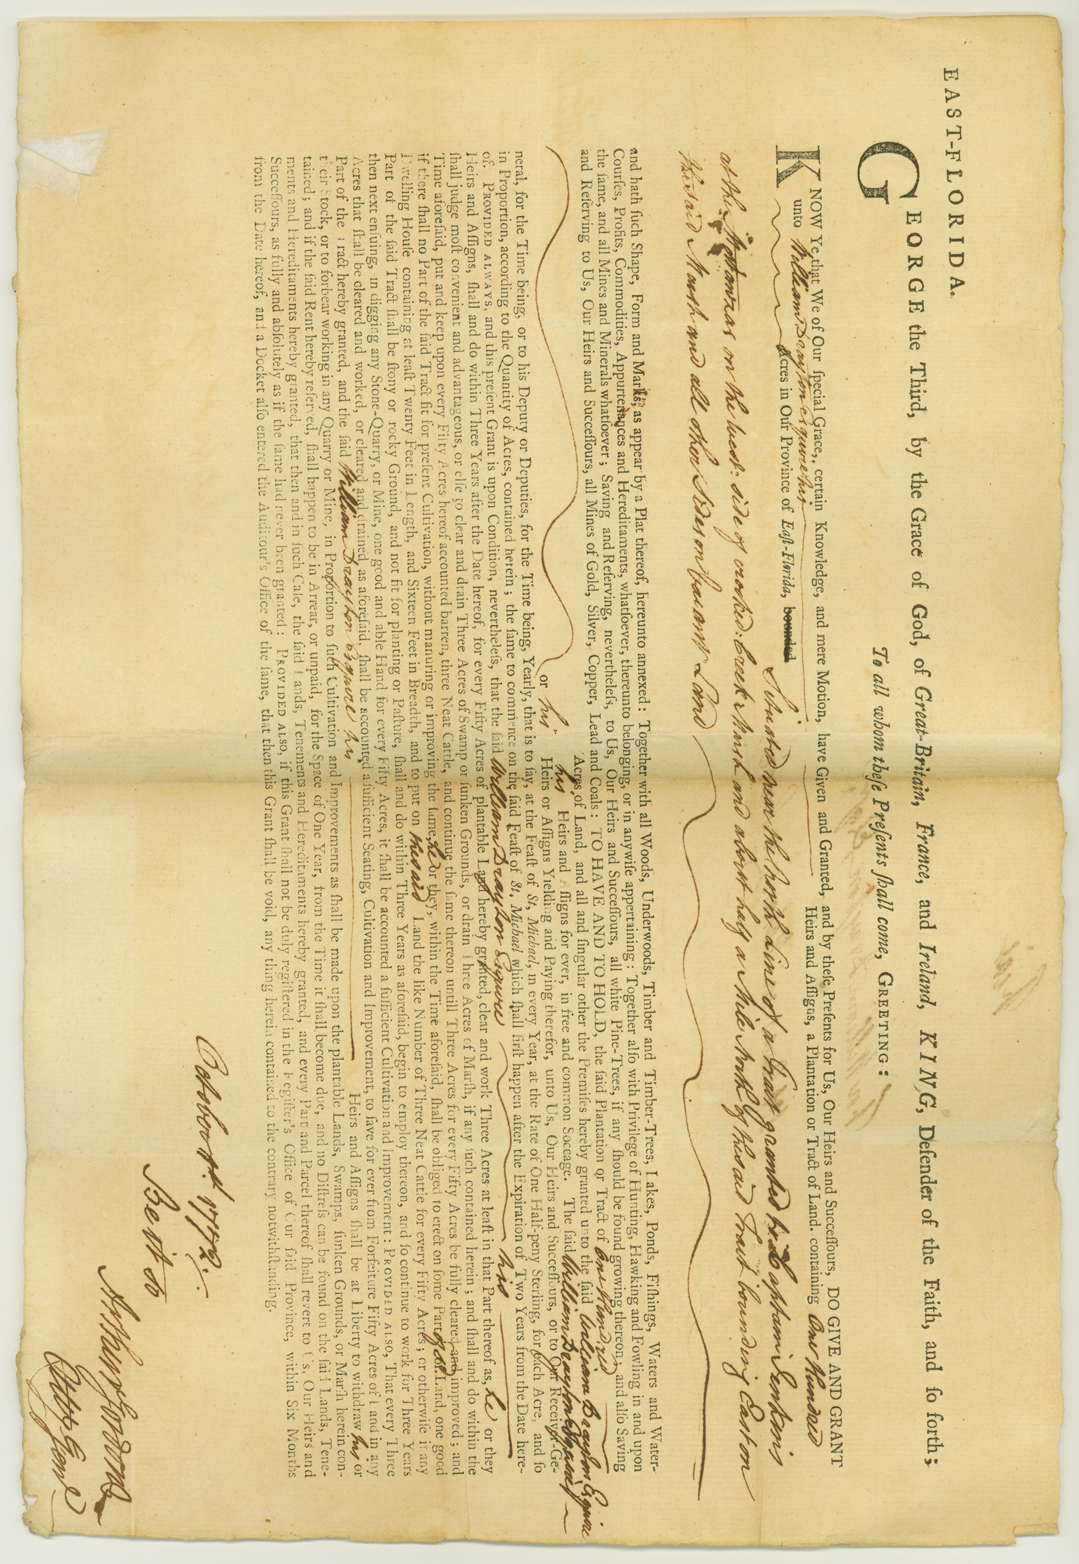 EAST-FLORIDA.
GEORGE the Third, by the Grace of God, of Great-Britain, France, and Ireland, KING, Defender of the Faith, and ſo forth;
To all whom theſe Preſents ſhall come, GREETING:
KNOW Ye that We of Our ſpecial Grace, certain Knowledge, and mere Motion, have Given and Granted, and by theſe Preſents for Us, Our Heirs and Succeſſors, DO GIVE AND GRANT
unto William Drayton Esquire his Heirs and Aſſigns, a Plantation or Tract of Land, containing One Hundred
Acres in Our Province of Eaſt-Florida, bounded Situated near the North Line of a Grant granted to Captain Jenkins
at the Matanzas on the West side of crooked Creek Marsh and about half a Mile North of his said Tract bounding East on
the said Marsh and all other Sides on Vacant Land
and hath ſuch Shape, Form and Marks, as appear by a Plat thereof, hereunto annexed: Together with all Woods, Underwoods, Timber and Timber-Trees, Lakes, Ponds, Fiſhings, Waters and Water-
Courſes, Profits, Commodities, Appurtenances and Hereditaments, whatſoever, thereunto belonging, or in anywiſe appertaining: Together alſo with Privilege of Hunting, Hawking and Fowling in and upon
the ſame, and all Mines and Minerals whatſoever; Saving and Reſerving, nevertheleſs, to Us, Our Heirs and Succeſſours, all white Pine-Trees, if any ſhould be found growing thereon; and alſo Saving
and Reſerving to Us, Our Heirs and Succeſſours, all Mines of Gold, Silver, Copper, Lead and Coals: TO HAVE AND TO HOLD, the ſaid Plantation or Tract of One Hundred
Acres of Land, and all and ſingular other the Premiſes hereby granted unto the ſaid William Drayton Esquire
his Heirs and Aſſigns for ever, in free and common Soccage. The ſaid William Drayton Esquire
or his Heirs or Aſſigns Yielding and Paying therefor, unto Us, Our Heirs and Succeſſours, or to Our Receiver-Ge-
neral, for the Time being, or to his Deputy or Deputies, for the Time being, Yearly, that is to ſay, at the Feaſt of St. Michael, in every Year, at the Rate of One Half-peny Sterling, for each Acre, and ſo
in Proportion, according to the Quantity of Acres, contained herein; the ſame to commence on the ſaid Feaſt of St. Michael which ſhall firſt happen after the Expiration of Two Years from the Date here-
of. PROVIDED ALWAYS, and this preſent Grant is upon Condition, nevertheleſs, that the ſaid William Drayton Esquire his
Heirs and Aſſigns, ſhall and do within Three Years after the Date hereof, for every Fifty Acres of plantable Land hereby granted, clear and work Three Acres at leaſt in that Part thereof as, he or they
ſhall judge moſt convenient and advantageous, or elſe to clear and drain Three Acres of Swamp or ſunken Grounds, or drain Three Acres of Marſh, if any ſuch contained herein; and ſhall and do within the
Time aforeſaid, put and keep upon every Fifty Acres hereof accounted barren, three Neat Cattle, and continue the ſame thereon untill Three Acres for every Fifty Acres be fully cleared and improved; and
if there ſhall no Part of the ſaid Tract fit for preſent Cultivation, without manuring or improving the ſame, he or they, within the Time aforeſaid, ſhall be obliged to erect on ſome Part of said Land, one good
Dwelling Houſe containing at leaſt Twenty Feet in Length, and Sixteen Feet in Breadth, and to put on the said Land the like Number of Three Neat Cattle for every Fifty Acres; or otherwiſe if any
Part of the ſaid Tract ſhall be ſtony or rocky Ground, and not fit for planting or Paſture, ſhall and do within Three Years as aforeſaid, begin to employ thereon, and ſo continue to work for Three Years
then next enſuing, in digging any Stone-Quarry, or Mine, one good and able Hand for every Fifty Acres, it ſhall be accounted a ſufficient Cultivation and improvement: PROVIDED ALSO, That every Three
Acres that ſhall be cleared and worked, or cleared and drained, as aforeſaid, ſhall be accounted a ſufficient Seating, Cultivation and Improvement, to ſave for ever from Forfeiture Fifty Acres of Land in any
Part of the Tract hereby granted, and the ſaid William Drayton Esquire his Heirs and Aſſigns ſhall be at Liberty to withdraw his or
their Stock, or to forbear working in any Quarry or Mine, in Proportion to ſuch Cultivation and Improvements as ſhall be made upon the plantable Lands, Swamps, ſunken Grounds, or Marſh herein con-
tained; and if the ſaid Rent hereby reſerved, ſhall happen to be in Arrear, or unpaid, for the Space of One Year, from the Time it ſhall become due, and no Diſtreſs can be found on the ſaid Lands, Tene-
ments and Hereditaments hereby granted, that then and in ſuch Caſe, the ſaid Lands, Tenements and Hereditaments hereby granted, and every Part and Parcel thereof ſhall revert to Us, Our Heirs and
Succeſſours, as fully and abſolutely as if the ſame had never been granted: PROVIDED ALSO, if this Grant ſhall not be duly regiſtered in the Regiſter's Office of Our ſaid Province, within Six Months
from the Date hereof, and a Docket alſo entered the Auditour's Office of the ſame, that then this Grant ſhall be void, any thing herein contained to the contrary notwithſtanding.
October 1772.
Be it so
Arthur Gordon
Atty Genl